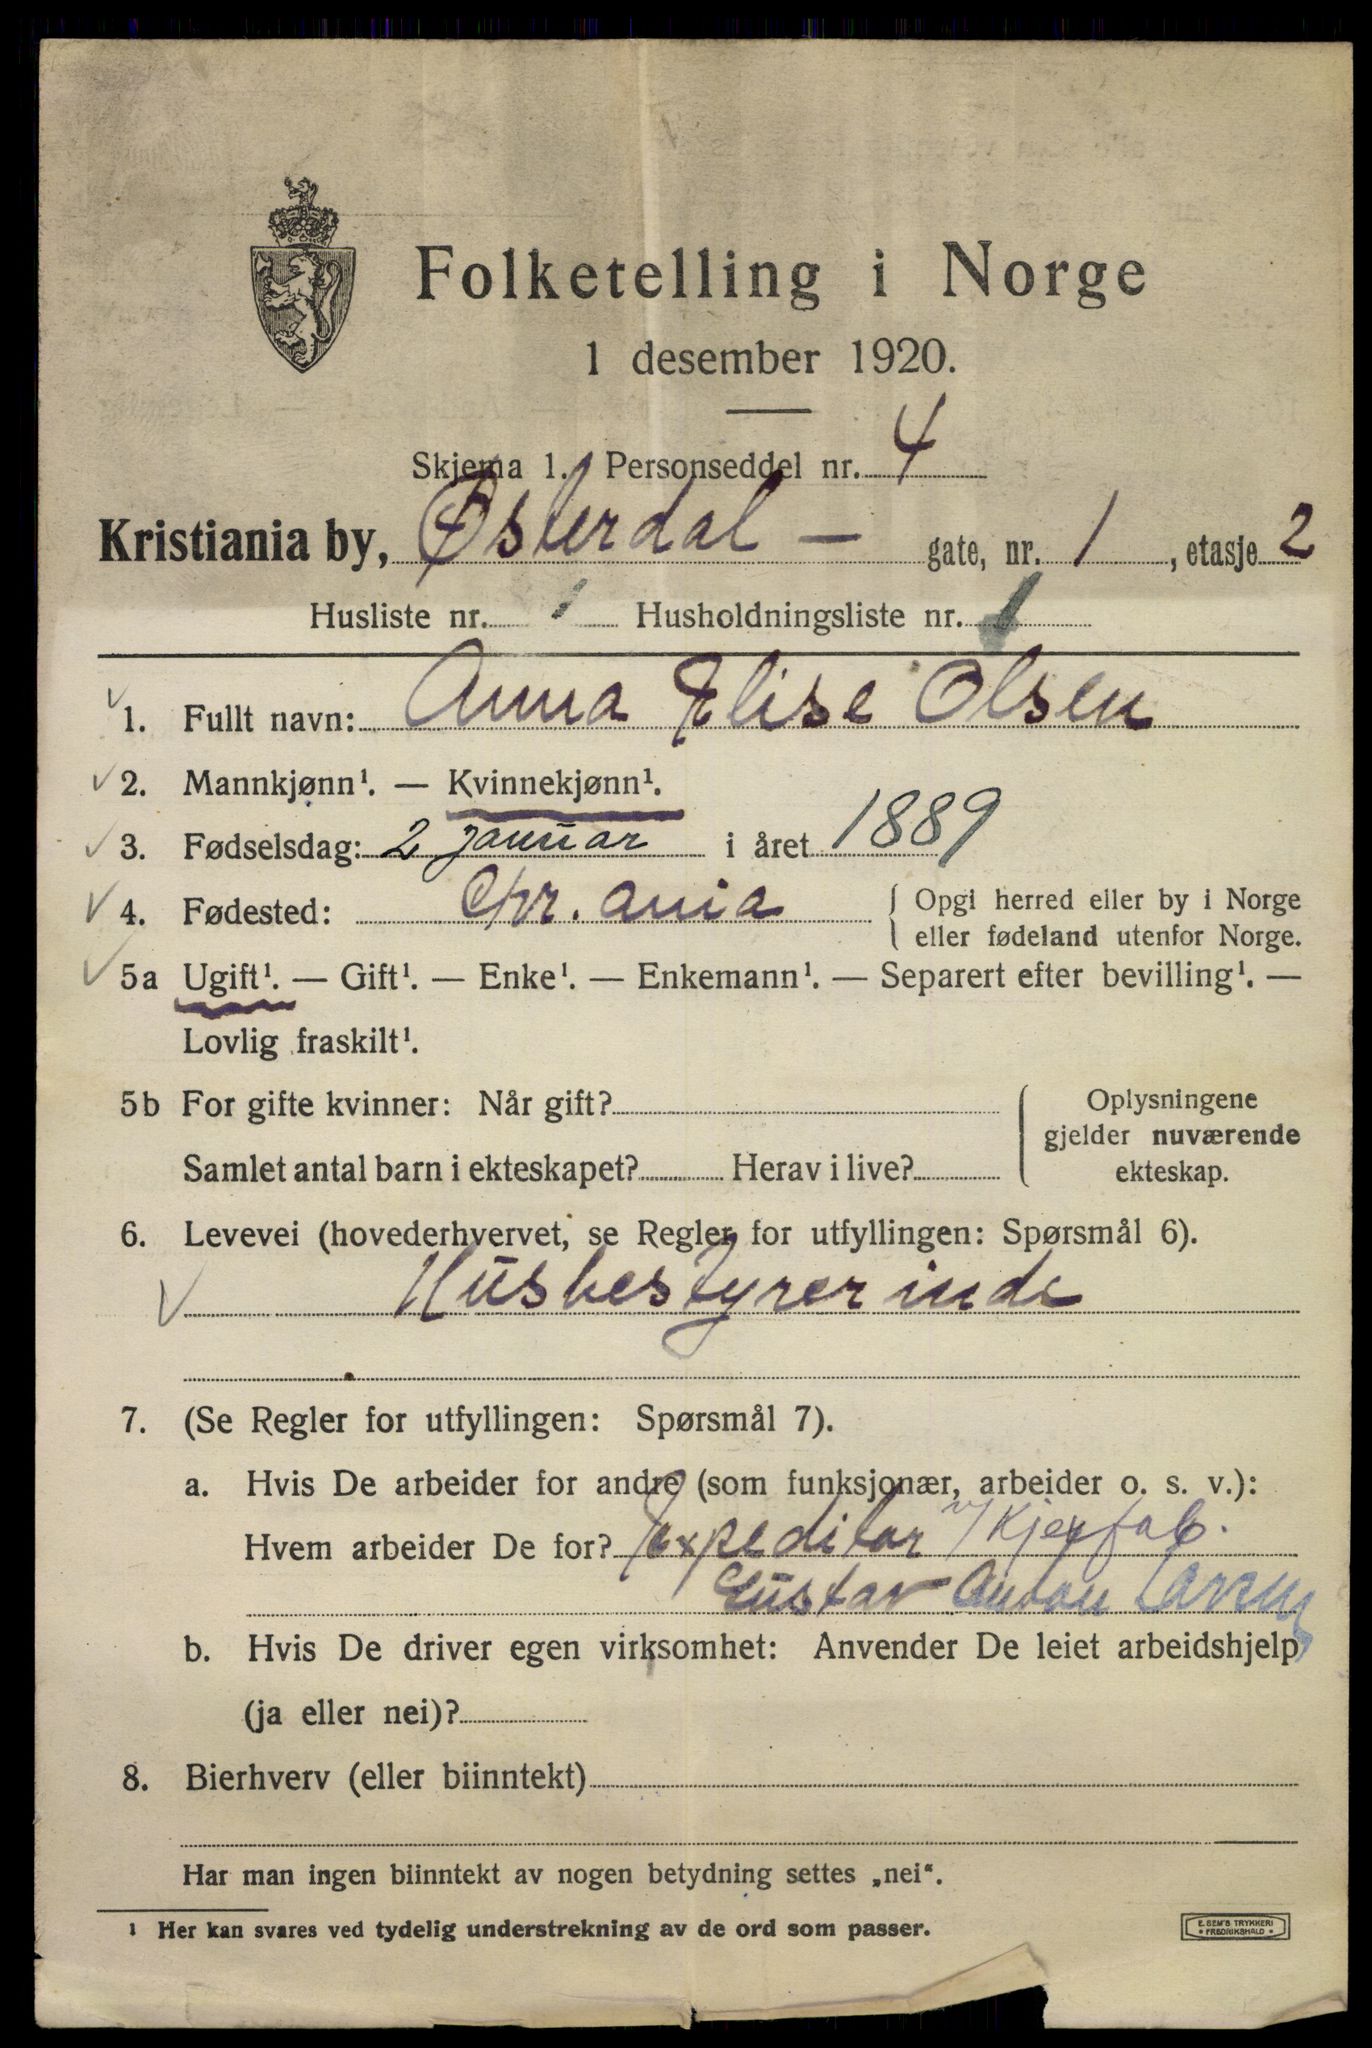 Folketelling i Norge
1 desember 1920.
Skjema 1. Personseddel nr. 4
Kristiania by, Østerdal - gate, nr. 1, etasje 2
Husliste nr. 1 Husholdningsliste nr. 1
1. Fullt navn: Anna Elise Olsen
2. Mannkjønn¹. — Kvinnekjønn¹.
3. Fødselsdag: 2 januar i året 1889
4. Fødested: Chr.ania { Opgi herred eller by i Norge
eller fødeland utenfor Norge.
5a Ugift¹. — Gift¹. — Enke¹. — Enkemann¹. — Separert efter bevilling¹. —
Lovlig fraskilt¹.
5b For gifte kvinner: Når gift? { Oplysningene
gjelder nuværende
Samlet antal barn i ekteskapet? Herav i live? ekteskap.
6. Levevei (hovederhvervet, se Regler for utfyllingen: Spørsmål 6).
Husbestyrerinde
7. (Se Regler for utfyllingen: Spørsmål 7).
a. Hvis De arbeider for andre (som funksjonær, arbeider o. s. v.):
Hvem arbeider De for? Expeditør v/ Kjexfab.
Gustav Anton Larsen
b. Hvis De driver egen virksomhet: Anvender De leiet arbeidshjelp
(ja eller nei)?
8. Bierhverv (eller biinntekt)
Har man ingen biinntekt av nogen betydning settes „nei“.
¹ Her kan svares ved tydelig understrekning av de ord som passer.
E. SEM'S TRYKKERI
* FREDRIKSHALD *